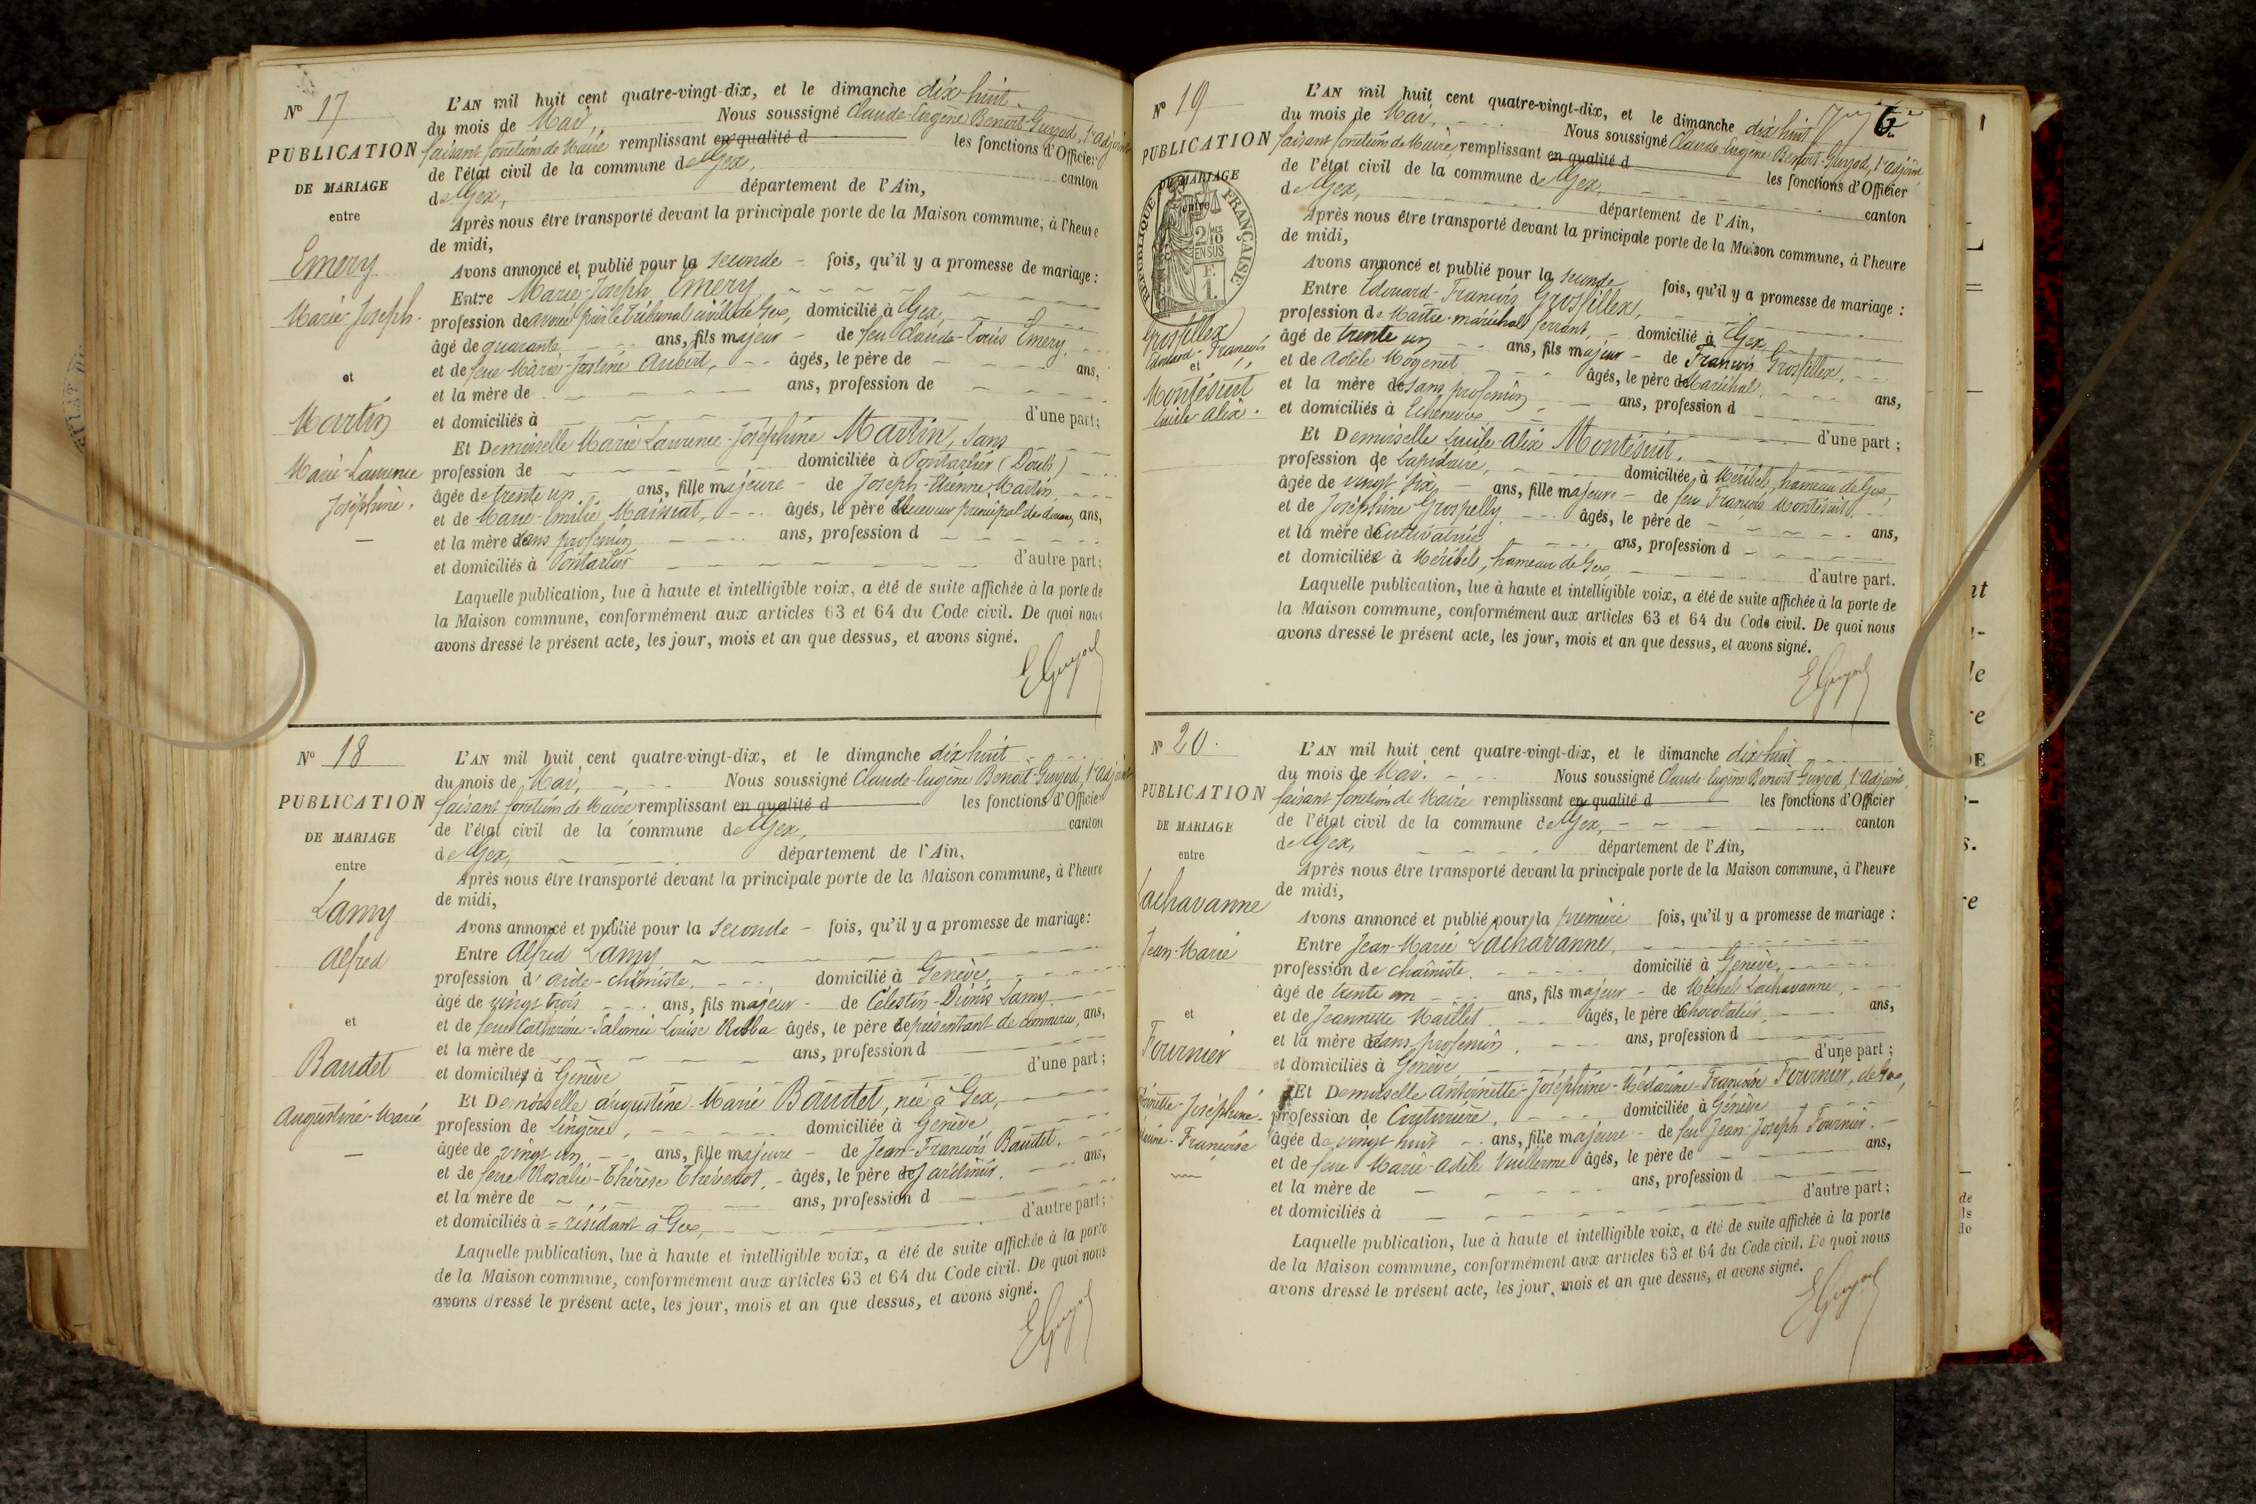 N° 17
PUBLICATION
DE MARIAGE
entre
Emery
Marie-Joseph
et
Martin
Marie-Laurence
Joséphine.
L'AN mil huit cent quatre-vingt-dix, et le dimanche dix-huit
du mois de Mai, Nous soussigné Claude-Eugène Benoît-Guyod, 1er adjoint
faisant fonctions de Maire remplissant en qualité d les fonctions d'Officier
de l'état civil de la commune de Gex, canton
de Gex, département de l'Ain,
Après nous être transporté devant la principale porte de la Maison commune, à l'heure
de midi,
Avons annoncé et publié pour la seconde fois, qu'il y a promesse de mariage :
Entre Marie-Joseph Emery
profession de avoué près le tribunal civil de Gex, domicilié à Gex,
âgé de quarante ans, fils majeur de feu Claude-Louis Emery
et de feue Marie-Justine Aubert, âgés, le père de ans,
et la mère de ans, profession de
et domiciliés à d'une part ;
Et Demoiselle Marie Laurence-Joséphine Martin, sans
profession de domiciliée à Pontarlier (Doubs)
âgée de trente un ans, fille majeure de Joseph-Etienne Martin
et de Marie-Emilie âgés, le père Receveur principal des douanes, ans,
et la mère sans profession ans, profession d
et domiciliés à Pontarlier d'autre part ;
Laquelle publication, lue à haute et intelligible voix, a été de suite affichée à la porte de
la Maison commune, conformément aux articles 63 et 64 du Code civil. De quoi nous
avons dressé le présent acte, les jour, mois et an que dessus, et avons signé.
EGuyod
N° 18
PUBLICATION
DE MARIAGE
entre
Lamy
Alfred
et
Baudet
Augustine-Marie
L'AN mil huit cent quatre-vingt-dix, et le dimanche dix-huit
du mois de Mai, Nous soussigné Claude-Eugène Benoît-Guyod, 1er adjoint
faisant fonctions de Maire remplissant en qualité d les fonctions d'Officier
de l'état civil de la commune de Gex, canton
de Gex, département de l'Ain,
Après nous être transporté devant la principale porte de la Maison commune, à l'heure
de midi,
Avons annoncé et publié pour la seconde fois, qu'il y a promesse de mariage :
Entre Alfred Lamy
profession d'aide-chimiste. domicilié à Genève,
âgé de vingt trois ans, fils majeur de Célestin-Denis Lamy.
et de feue Catherine-Salomée Louise âgés, le père représentant de commerce, ans,
et la mère de ans, profession d
et domiciliés à Genève d'une part ;
Et Demoiselle Augustine-Marie Baudet, née à Gex,
profession de Lingère, domiciliée à Genève
âgée de vingt un ans, fille majeure de Jean-François Baudet.
et de feue Rosalie-Thérèse Thévenot. âgés, le père de Jardinier. ans,
et la mère de ans, profession d
et domiciliés à = résidant à Gex, d'autre part ;
Laquelle publication, lue à haute et intelligible voix, a été de suite affichée à la porte
de la Maison commune, conformément aux articles 63 et 64 du Code civil. De quoi nous
avons dressé le présent acte, les jour, mois et an que dessus, et avons signé.
EGuyod
N° 19
PUBLICATION
DE MARIAGE
entre
RÉPUBLIQUE FRANÇAISE
2/10
EN SUS
F.
1.
Grosfillex
Edouard-François
et
Montésuit
Lucile Alix.
6
L'AN mil huit cent quatre-vingt-dix, et le dimanche dix huit
du mois de Mai, Nous soussigné Claude-Eugène Benoît-Guyod, 1er adjoint
faisant fonctions de Maire remplissant en qualité d les fonctions d'Officier
de l'état civil de la commune de Gex, canton
de Gex, département de l'Ain,
Après nous être transporté devant la principale porte de la Maison commune, à l'heure
de midi,
Avons annoncé et publié pour la seconde fois, qu'il y a promesse de mariage :
Entre Edouard-François Grosfillex,
profession de Maître-maréchal ferrant, domicilié à Gex,
âgé de trente un ans, fils majeur de François Grosfillex,
et de Adèle Moyenet âgés, le père de Maréchal, ans,
et la mère de sans profession ans, profession d
et domiciliés à Echenevex d'une part ;
Et Demoiselle Lucile-Alix Montésuit,
profession de Lapidaire, domiciliée à Méribel, hameau de Gex,
âgée de vingt six ans, fille majeure de feu François Montésuit,
et de Joséphine Grospelly âgés, le père de ans,
et la mère de Cultivatrice ans, profession d
et domiciliée à Méribel, hameau de Gex, d'autre part.
Laquelle publication, lue à haute et intelligible voix, a été de suite affichée à la porte de
la Maison commune, conformément aux articles 63 et 64 du Code civil. De quoi nous
avons dressé le présent acte, les jour, mois et an que dessus, et avons signé.
EGuyod
N° 20.
PUBLICATION
DE MARIAGE
entre
Lachavanne
Jean-Marie
et
Fournier
Joséphine-
Françoise
L'AN mil huit cent quatre-vingt-dix, et le dimanche dix-huit
du mois de Mai. Nous soussigné Claude-Eugène Benoît-Guyod, 1er adjoint,
faisant fonctions de Maire remplissant en qualité d les fonctions d'Officier
de l'état civil de la commune de Gex, canton
de Gex, département de l'Ain,
Après nous être transporté devant la principale porte de la Maison commune, à l'heure
de midi,
Avons annoncé et publié pour la première fois, qu'il y a promesse de mariage :
Entre Jean-Marie Lachavanne,
profession de chaîniste. domicilié à Genève,
âgé de trente un ans, fils majeur de Michel Lachavanne,
et de Jeannette Maillet âgés, le père Chocolatier, ans,
et la mère sans profession, ans, profession d
et domiciliés à Genève d'une part ;
Et Demoiselle Antoinette-Joséphine-Médarine-Françoise Fournier, de Gex,
profession de Couturière, domiciliée à Génève
âgée de vingt huit ans, fille majeure de feu Jean-Joseph Fournier.
et de feue Marie-Adèle Vuillerme âgés, le père de ans,
et la mère de ans, profession d
et domiciliés à d'autre part ;
Laquelle publication, lue à haute et intelligible voix, a été de suite affichée à la porte
de la Maison commune, conformément aux articles 63 et 64 du Code civil. De quoi nous
avons dressé le présent acte, les jour, mois et an que dessus, et avons signé.
EGuyod